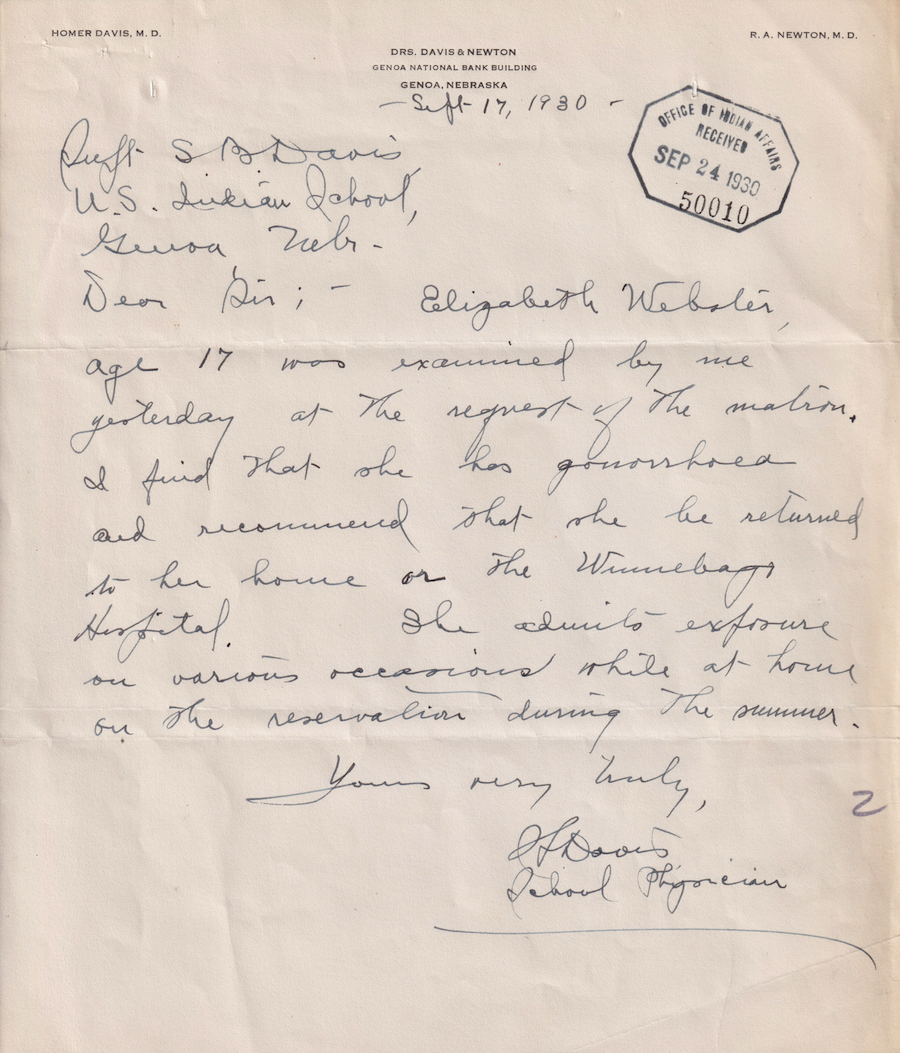 HOMER DAVIS, M. D.
R. A. NEWTON, M. D.
DRS. DAVIS & NEWTON
GENOA NATIONAL BANK BUILDING
GENOA, NEBRASKA
— Sept 17, 1930 -
OFFICE OF INDIAN AFFAIRS
RECEIVED
SEP 24 1930
50010
Supt S B Davis,
U.S. Indian School,
Genoa, Nebr -
Dear Sir; - Elizabeth Webster,
age 17 was examined by me
yesterday at the request of the matron.
I find that she has gonorrhoea
and recommend that she be returned
to her home or the Winnebago
Hospital. She admits exposure
on various occasions while at home
on the reservation during the summer.
Yours very truly,
Davis
School Physician
2